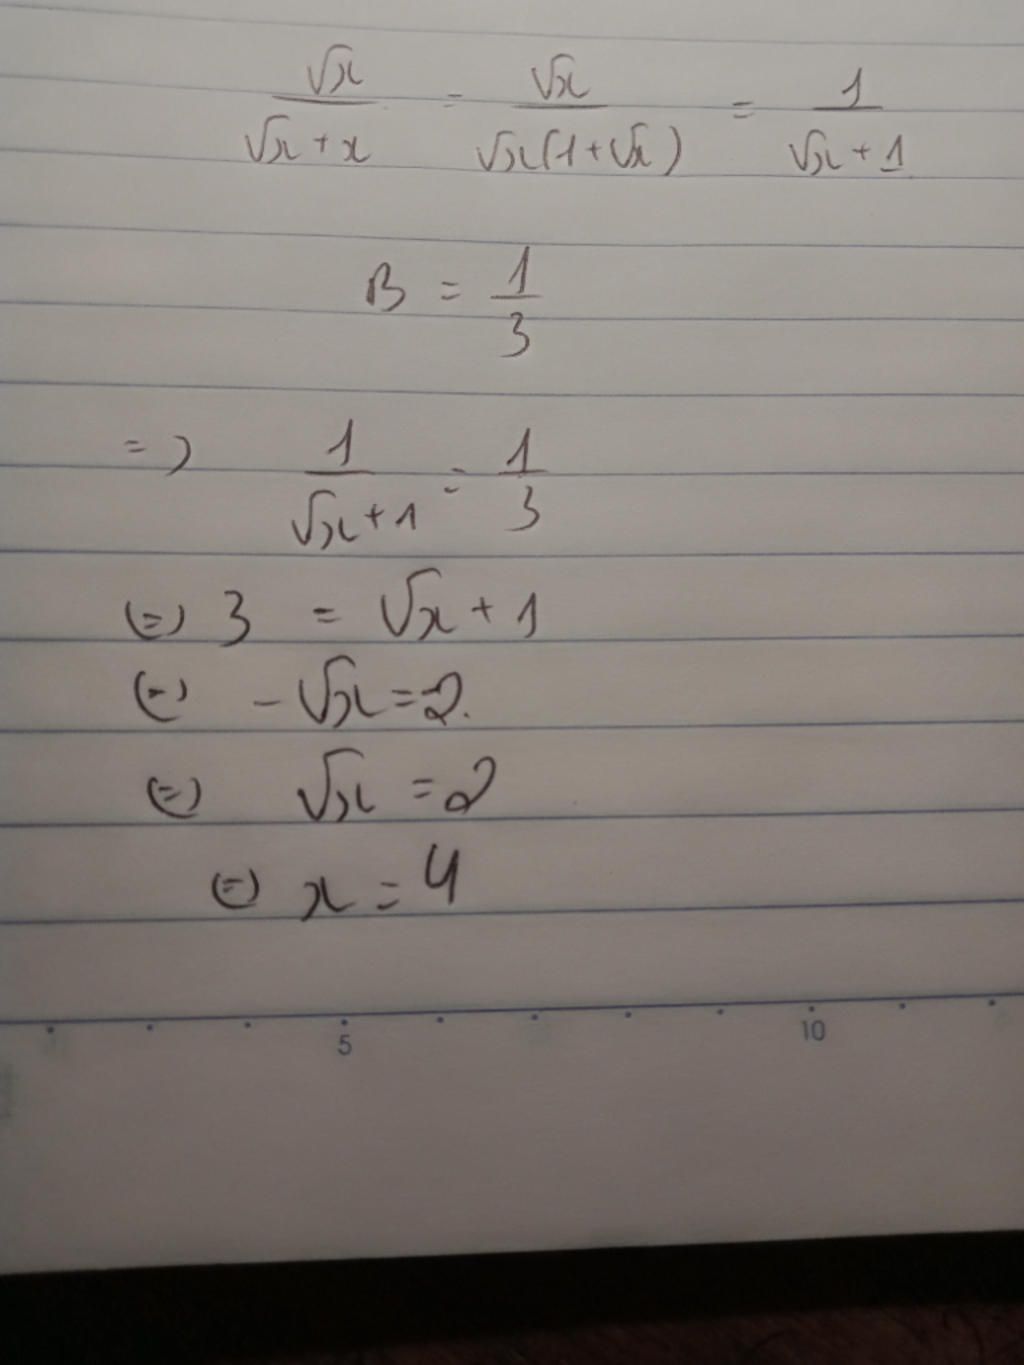 √x / (√x + x) = √x / (√x(1 + √x)) = 1 / (√x + 1)
B = 1/3
=> 1 / (√x + 1) = 1/3
<=> 3 = √x + 1
<=> -√x = -2.
<=> √x = 2
<=> x = 4
5 10